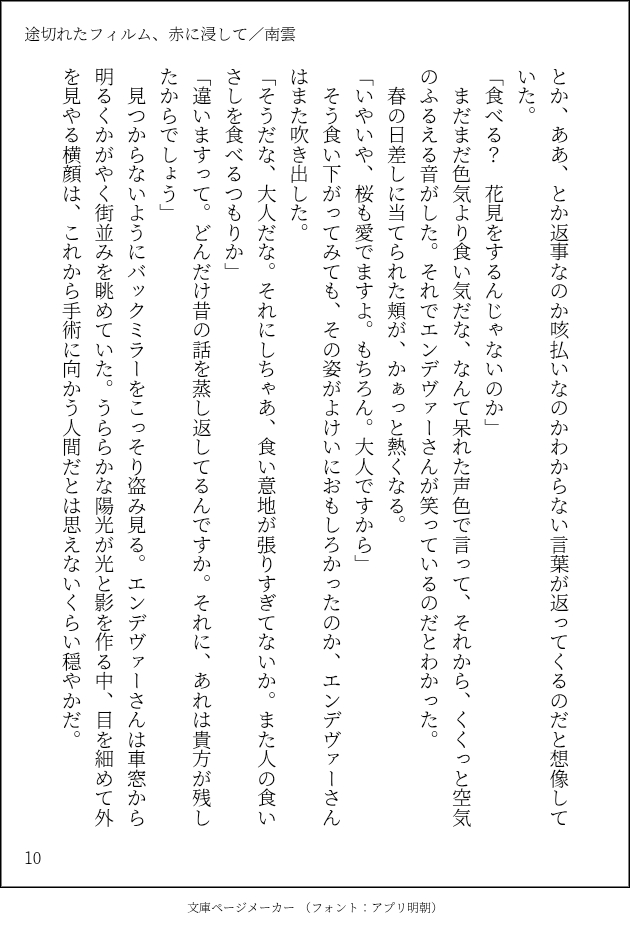 途切れたフィルム、赤に浸して／南雲
とか、ああ、とか返事なのか咳払いなのかわからない言葉が返ってくるのだと想像して
いた。
「食べる？　花見をするんじゃないのか」
　まだまだ色気より食い気だな、なんて呆れた声色で言って、それから、くくっと空気
のふるえる音がした。それでエンデヴァーさんが笑っているのだとわかった。
　春の日差しに当てられた頬が、かぁっと熱くなる。
「いやいや、桜も愛でますよ。もちろん。大人ですから」
　そう食い下がってみても、その姿がよけいにおもしろかったのか、エンデヴァーさん
はまた吹き出した。
「そうだな、大人だな。それにしちゃあ、食い意地が張りすぎてないか。また人の食い
さしを食べるつもりか」
「違いますって。どんだけ昔の話を蒸し返してるんですか。それに、あれは貴方が残し
たからでしょう」
　見つからないようにバックミラーをこっそり盗み見る。エンデヴァーさんは車窓から
明るくかがやく街並みを眺めていた。うららかな陽光が光と影を作る中、目を細めて外
を見やる横顔は、これから手術に向かう人間だとは思えないくらい穏やかだ。
10
文庫ページメーカー （フォント：アプリ明朝）